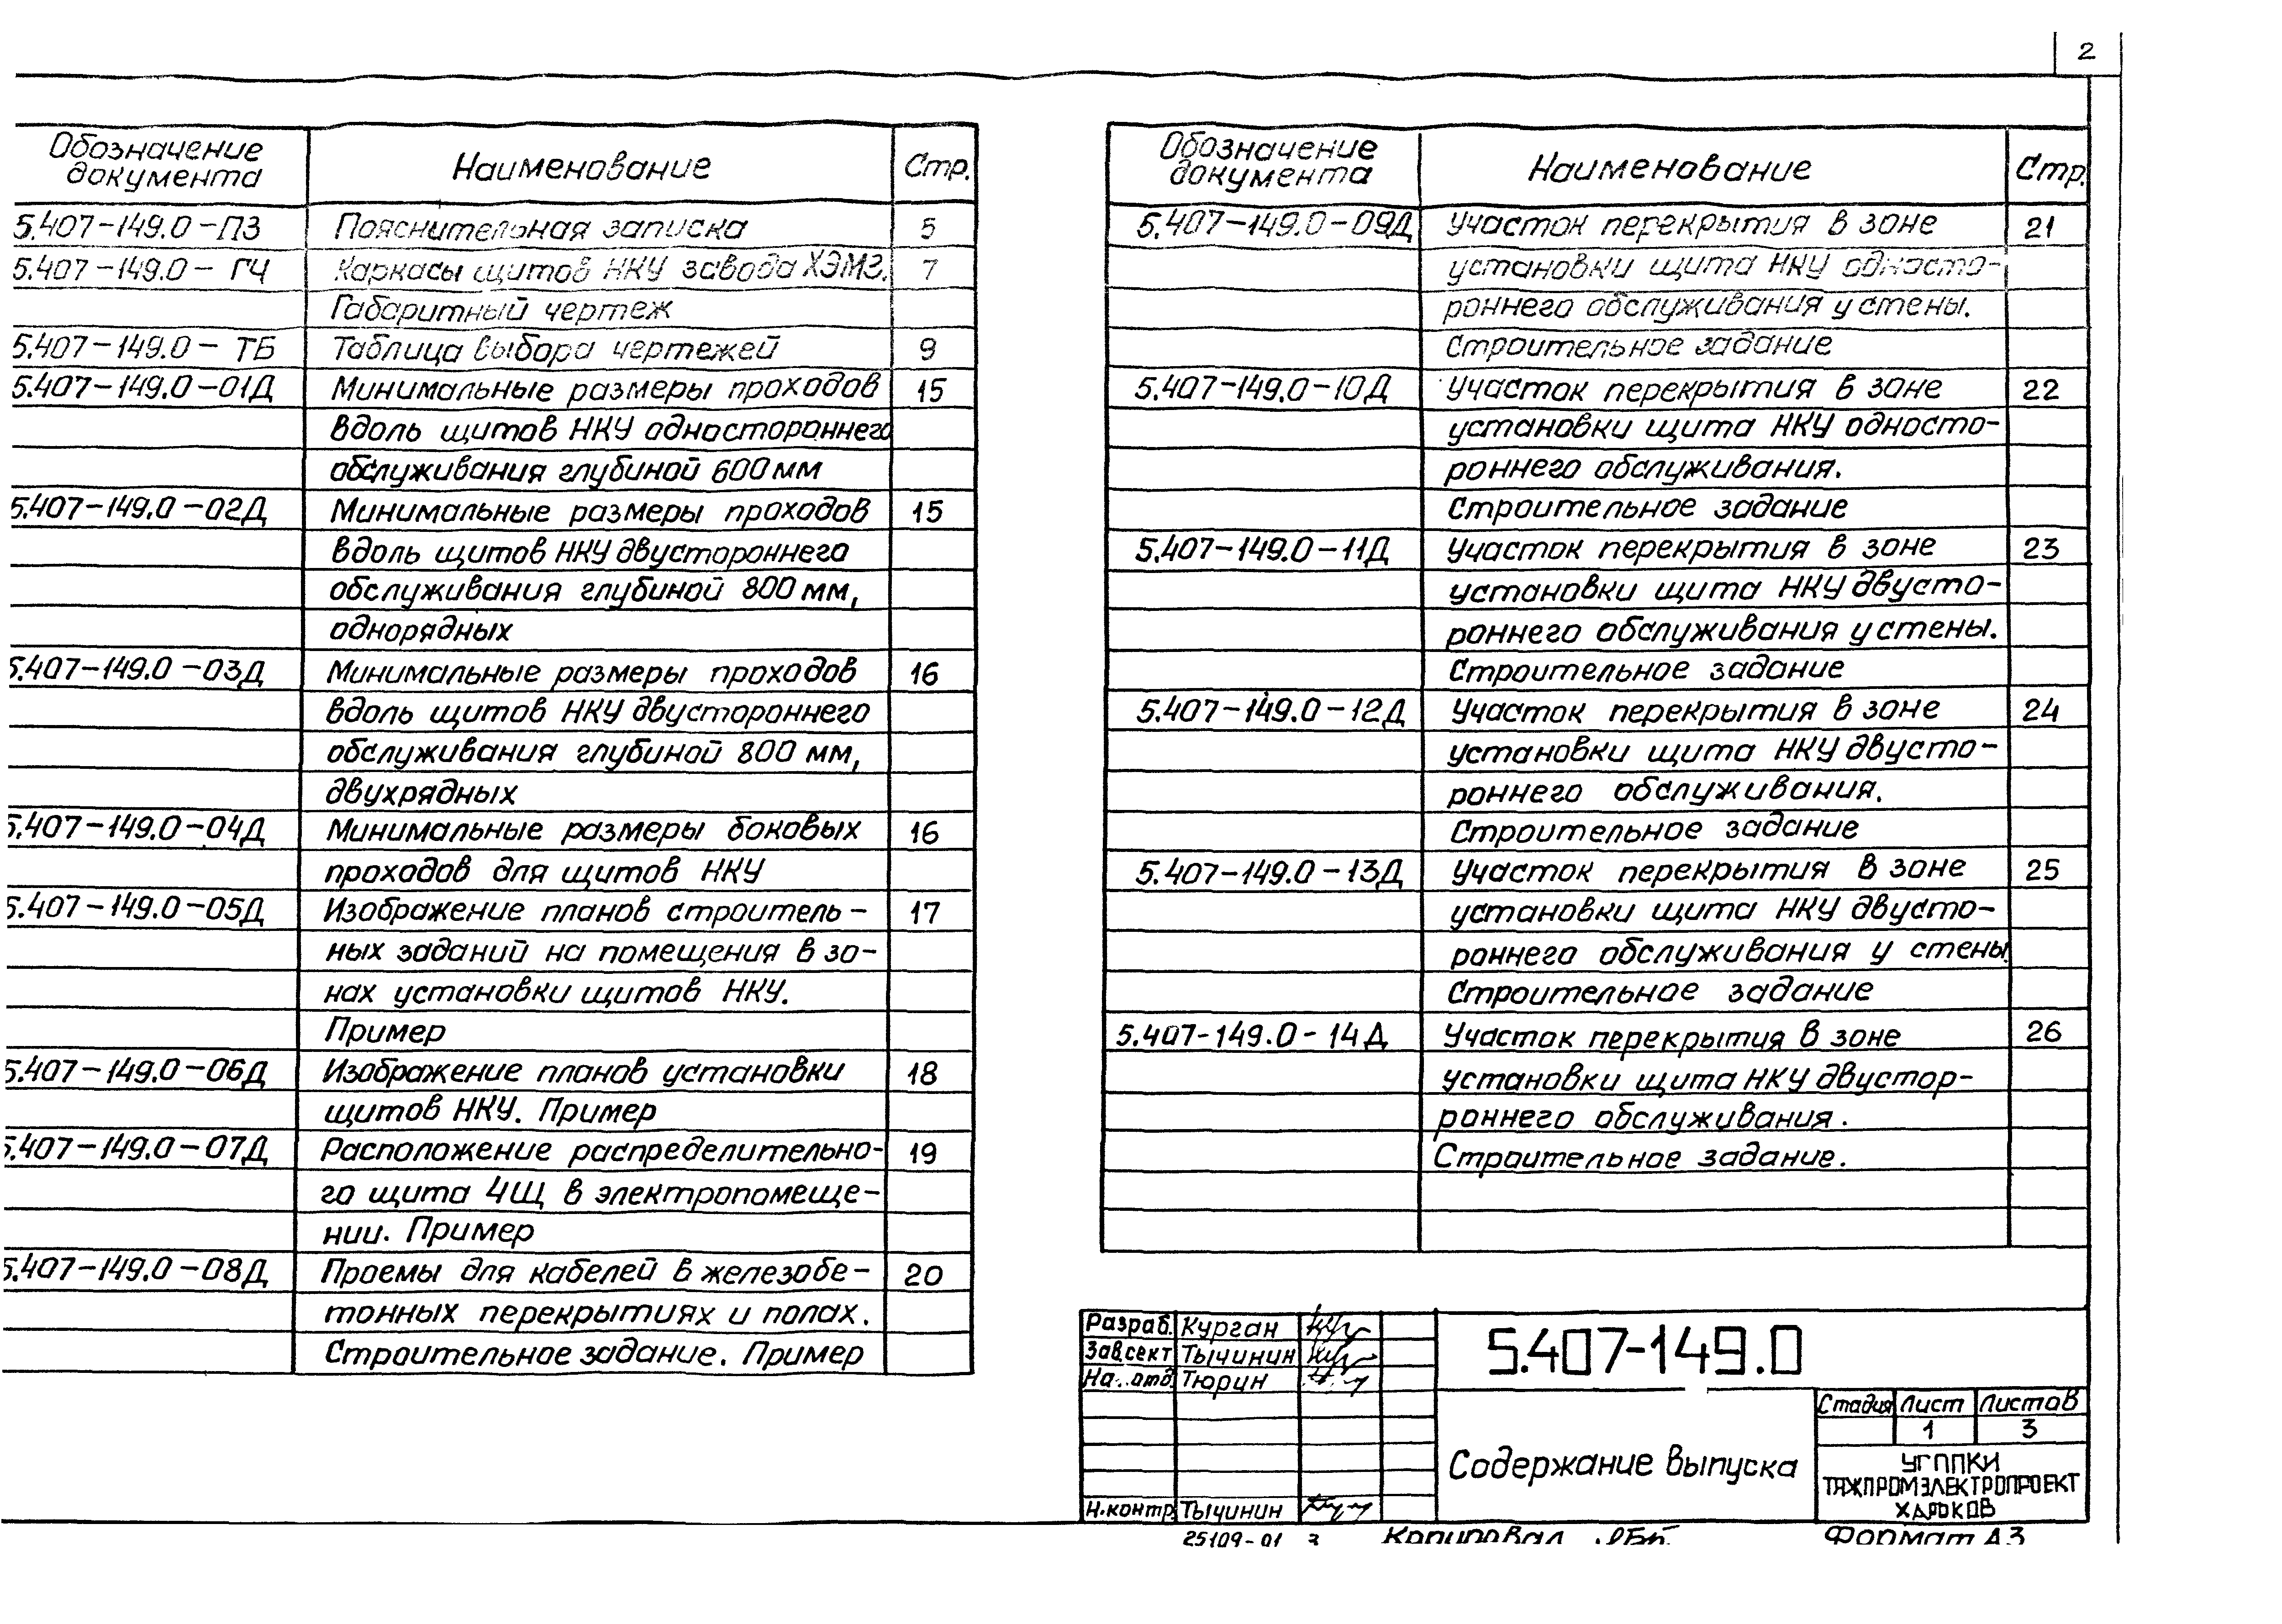 2
Обозначение документа Наименование Стр.
5.407-149.0-ПЗ Пояснительная записка 5
5.407-149.0- ГЧ Каркасы щитов НКУ завода ХЭМЗ. 7
Габаритный чертеж
5.407-149.0- ТБ Таблица выбора чертежей 9
5.407-149.0-01Д Минимальные размеры проходов 15
вдоль щитов НКУ одностороннего
обслуживания глубиной 600 мм
5.407-149.0-02Д Минимальные размеры проходов 15
вдоль щитов НКУ двустороннего
обслуживания глубиной 800 мм,
однорядных
5.407-149.0-03Д Минимальные размеры проходов 16
вдоль щитов НКУ двустороннего
обслуживания глубиной 800 мм,
двухрядных
5.407-149.0-04Д Минимальные размеры боковых 16
проходов для щитов НКУ
5.407-149.0-05Д Изображение планов строитель- 17
ных заданий на помещения в зо-
нах установки щитов НКУ.
Пример
5.407-149.0-06Д Изображение планов установки 18
щитов НКУ. Пример
5.407-149.0-07Д Расположение распределительно- 19
го щита 4Щ в электропомеще-
нии. Пример
5.407-149.0-08Д Проемы для кабелей в железобе- 20
тонных перекрытиях и полах.
Строительное задание. Пример
Обозначение документа Наименование Стр.
5.407-149.0-09Д Участок перекрытия в зоне 21
установки щита НКУ односто-
роннего обслуживания у стены.
Строительное задание
5.407-149.0-10Д Участок перекрытия в зоне 22
установки щита НКУ односто-
роннего обслуживания.
Строительное задание
5.407-149.0-11Д Участок перекрытия в зоне 23
установки щита НКУ двусто-
роннего обслуживания у стены.
Строительное задание
5.407-149.0-12Д Участок перекрытия в зоне 24
установки щита НКУ двусто-
роннего обслуживания.
Строительное задание
5.407-149.0-13Д Участок перекрытия в зоне 25
установки щита НКУ двусто-
роннего обслуживания у стены
Строительное задание
5.407-149.0-14Д Участок перекрытия в зоне 26
установки щита НКУ двустор-
роннего обслуживания.
Строительное задание.
Разраб. Курган
Зав.сект Тычинин
На. отд Тюрин
Н.контр. Тычинин
5.407-149.0
Содержание выпуска
Стадия Лист Листов
1 3
УГППКИ
ТЯЖПРОМЭЛЕКТРОПРОЕКТ
ХАРЬКОВ
25109-01 3 Копировал Формат А3